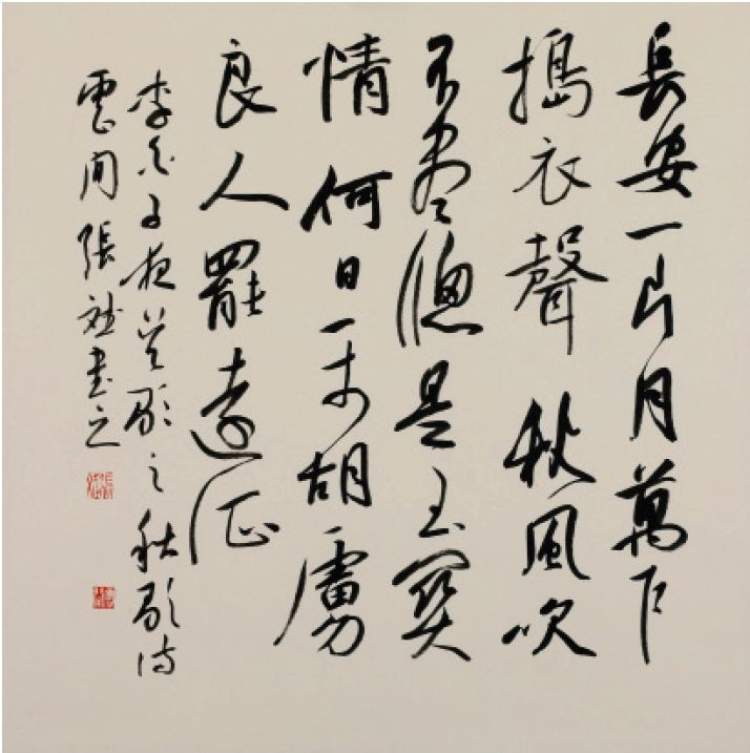 長安一片月萬戶
搗衣聲秋風吹
不盡總是玉關
情何日平胡虜
良人罷遠征
李白子夜吳歌之秋歌詩
雲間張斌書之